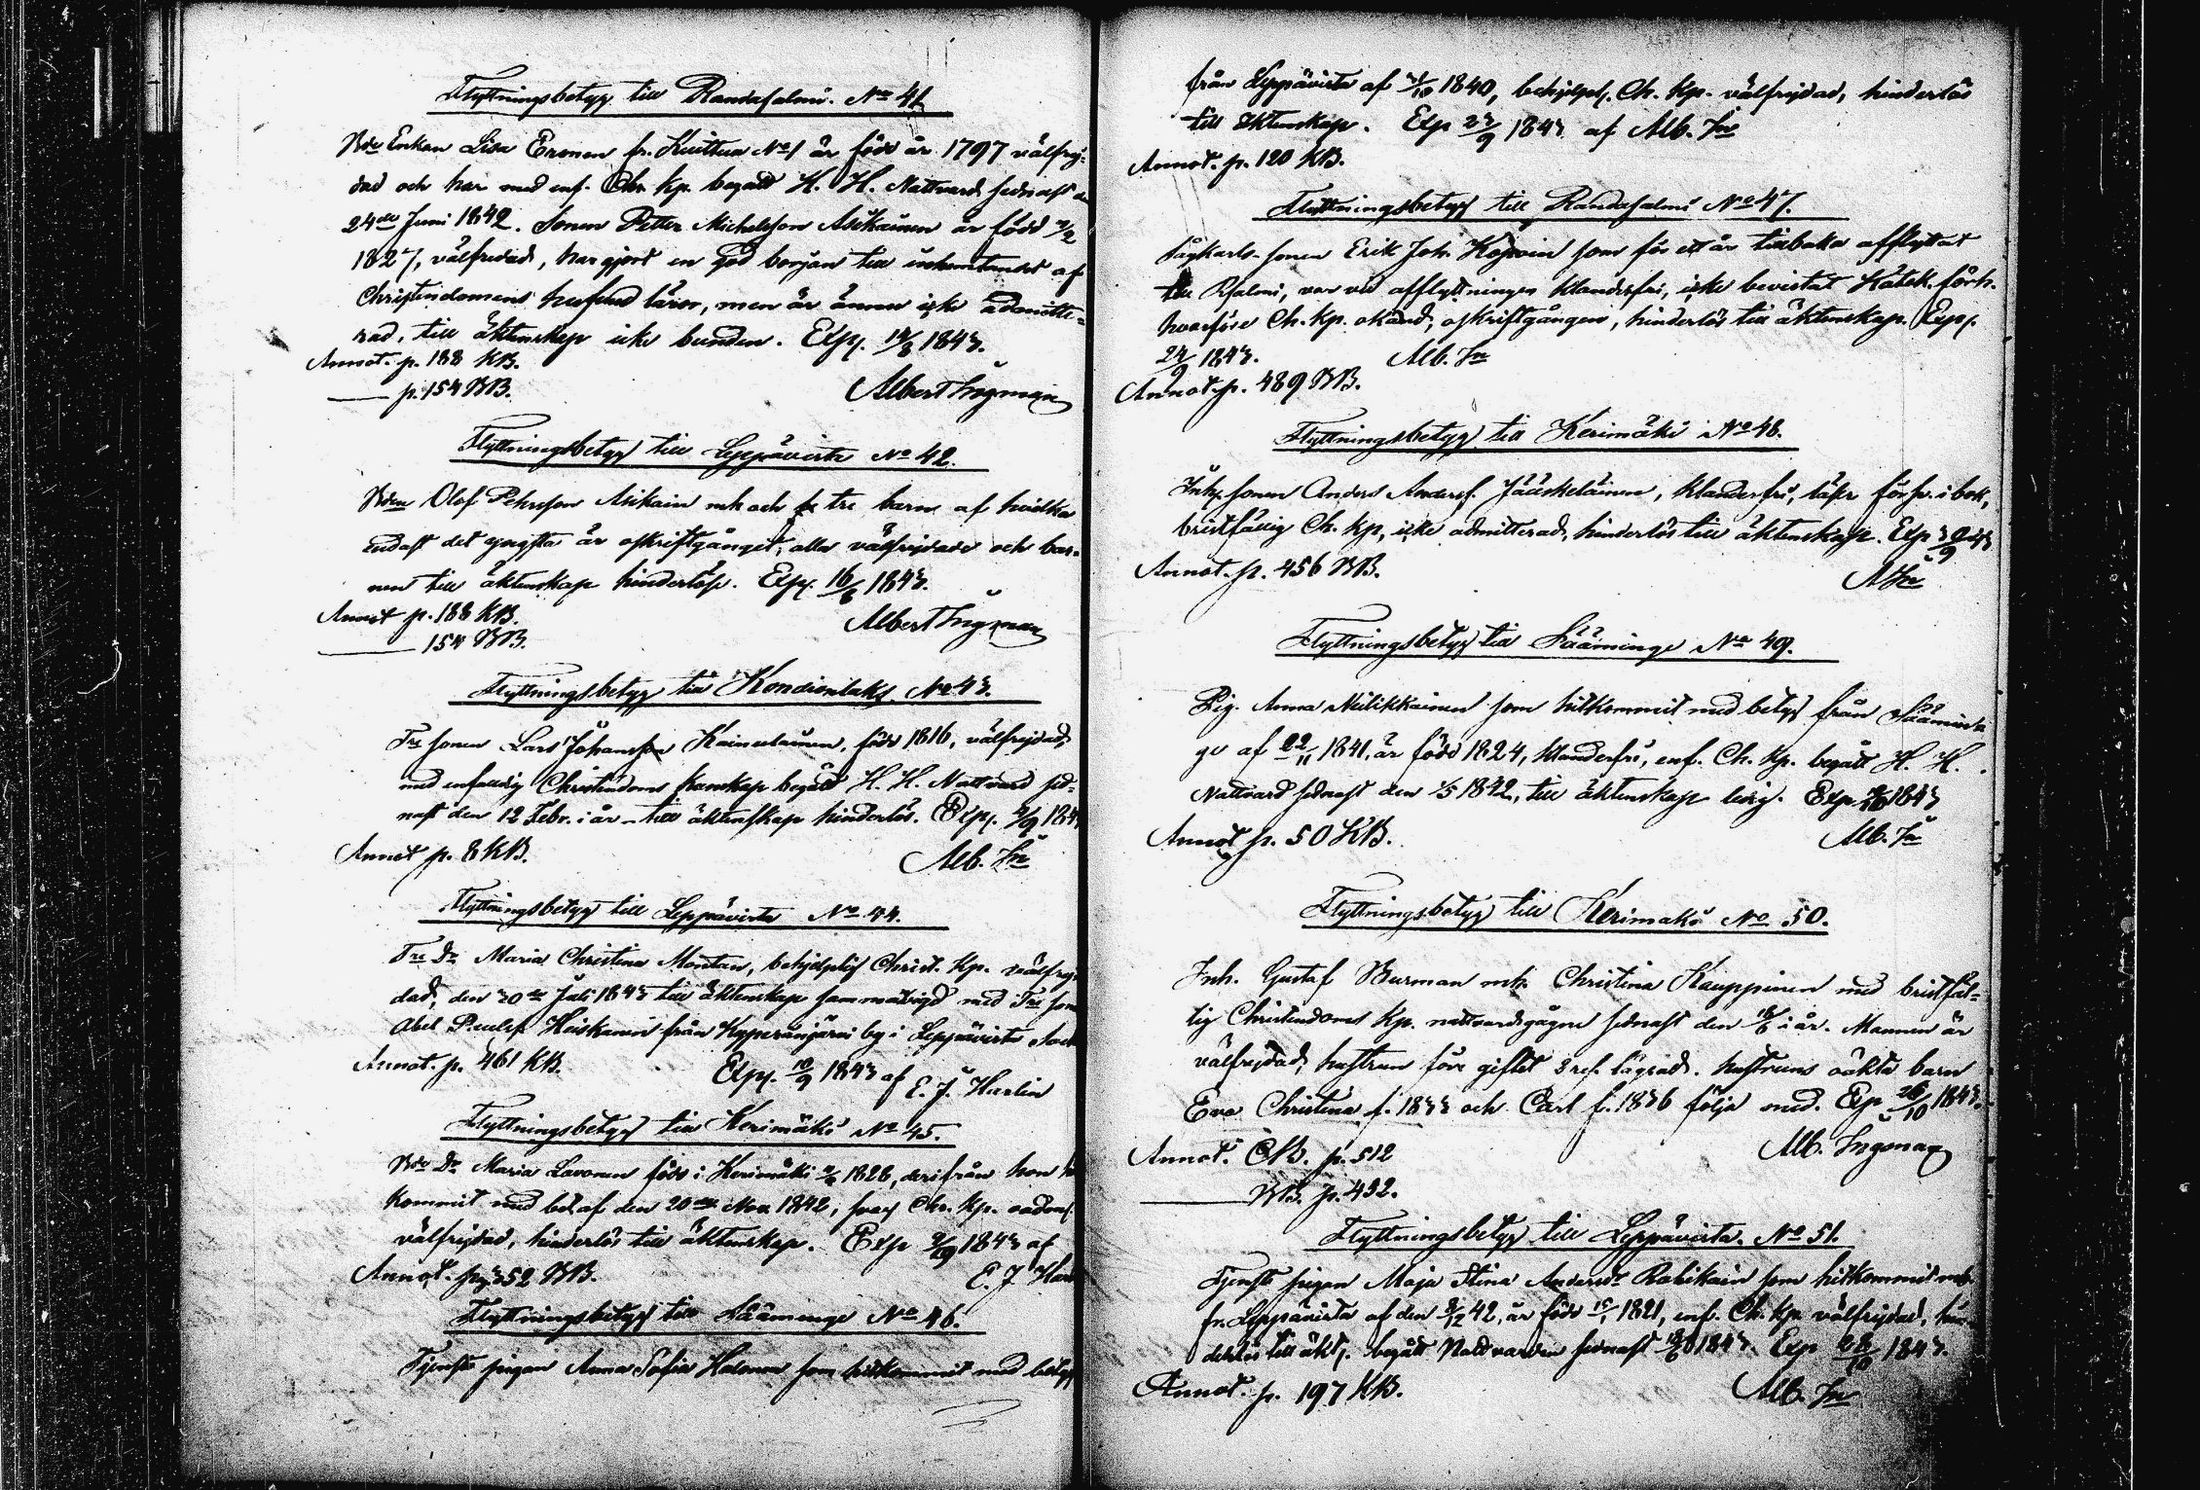 Flyttningsbetyg till Randasalmi. No 41
Bde Enkan Lisa Eronen fr. Kuittua No 1 är född år 1797 välfrej-
dad och har med enf. Chr. Kp. begått H. H. Nattvard sednast
24de Juni 1842. Sonen Petter Michelsson Asikainen är född
1827, välfrejdad, har gjort en god början till inhemtandet af
Christendomens hufvud läror, men är ännu icke admitte-
rad, till äktenskap icke bunden. Exp. 1843.
Annot. p. 188 KB.
p. 154 BB.
Albert Ingman
Flyttningsbetyg till Leppävirta No 42.
Bden Olof Pehrsson Asikain mh och tre barn af hvilka
endast det yngsta är oskriftgånget, alla välfrejdade och bar-
nen till äktenskap hinderlös. Exp. 1843.
Annot p. 188 KB.
154 BB.
Albert Ingman
Flyttningsbetyg till Kondiolaks No 43.
Tre sonen Lars Johansson Kainulainen, född 1816, välfrejdad,
med enfaldig Christendoms kunskap begått H. H. Nattvard sed-
nast den 12 Febr. i år – till äktenskap hinderlös. Exp.
Annot p. 8 KB.
Alb. In
Flyttningsbetyg till Leppävirta No 44.
Tre Dr Maria Christina Montan, behjelplig Christ. Kp. välfrej-
dad, den 1843 till äktenskap sammanvigd med Tre son
Abel Paulss. Heiskanen från by i Leppävirta
Annot. p. 461 KB.
Exp. 10/9 1843 af E. J. Harlin
Flyttningsbetyg till Kerimäki No 45.
Bde Dr Maria Lavonen född i Kerimäki 1828, derifrån hon
kommit med bet. af den 20de Nov. 1842, svag Chr. Kp.
välfrejdad, hinderlös till äktenskap. Exp 1843 af
Annot. pag 352 BB.
E. J. Har
Flyttningsbetyg till Sääminge No 46.
Tjenste pigan Anna Sofia Halonen som hitkommit med betyg
från Leppävirta af 1840, behjelpl. Ch. Kp. välfrejdad, hinderlös
till äktenskap. Exp 1843 af Alb. In
Annot. p. 120 KB.
Flyttningsbetyg till Randasalmi No 47.
Sågkarls-sonen Erik Joh. som för ett år tillbaka afflyttat
till Rsalmi, var vid afflyttningen klanderfri, icke bevistat Katek. förh.
hvarföre Ch. Kp. okänd, oskriftgången, hinderlös till äktenskap. Exp.
1843. Alb. In
Annot. p. 489 BB.
Flyttningsbetyg till Kerimäki No 48.
Inh. sonen Anders Anderss. Jääskeläinen, klanderfri, läser förs. i bok,
bristfällig Ch. Kp, icke admitterad, hinderlös till äktenskap. Exp
Annot. p. 456 BB.
A In
Flyttningsbetyg till Sääminge No 49.
Pig. Anna som hitkommit med betyg från Säämin-
ge af 1841, är född 1824, klanderfri, enf. Ch. Kp. begått H. H.
Nattvard sednast den 1842, till äktenskap ledig. Exp 1843
Annot p. 50 KB.
Alb. In
Flyttningsbetyg till Kerimäki No 50.
Inh. Gustaf Burman mh. Christina Kauppinen med bristfäl-
lig Christendoms Kp. nattvardsgågne sednast den i år. Mannen är
välfrejdad, hustrun före giftet lägrad. hustruns oäkta barn
Eva Christina f. 1833 och Carl f. 1836 följa med. Exp 1843.
Annot. KB. p. 512
BB. p. 432.
Alb. Ingman
Flyttningsbetyg till Leppävirta. No 51.
Tjenste pigan Maja Stina Andersdr som hitkommit
fr. Leppävirta af den 42, är född 1821, enf. Ch. Kp. välfrejdad, hin-
derlös till äkt., begått Nattvarden sednast 1843. Exp 1843.
Annot. p. 197 KB.
Alb. In